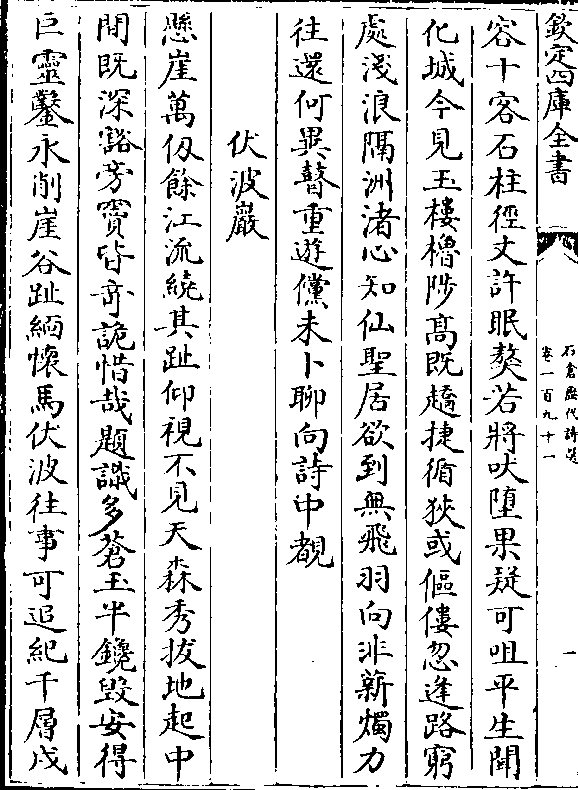 欽定四庫全書
石倉歷代詩選
卷一百九十一
一
容十客石柱徑丈許眠獒若將吠墮果疑可咀平生聞
化城今見玉樓櫓陟髙既趫捷循狹或傴僂忽逢路窮
處淺浪隔洲渚心知仙聖居欲到無飛羽向非新燭力
往還何異瞽重遊儻未卜聊向詩中覩
伏波巖
懸崖萬仭餘江流繞其趾仰視不見天森秀拔地起中
間既深谿旁竇皆竒詭惜哉題識多蒼玉半鑱毁安得
巨靈鑿永削崖谷趾緬懷馬伏波往事可追紀千層戍